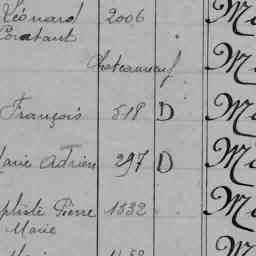 Léonard 2006 Ma
Constant
Chateauneuf Ma
François 518 D Ma
Marie Adrien 297 D Ma
Baptiste Pierre 1332 Ma
Marie